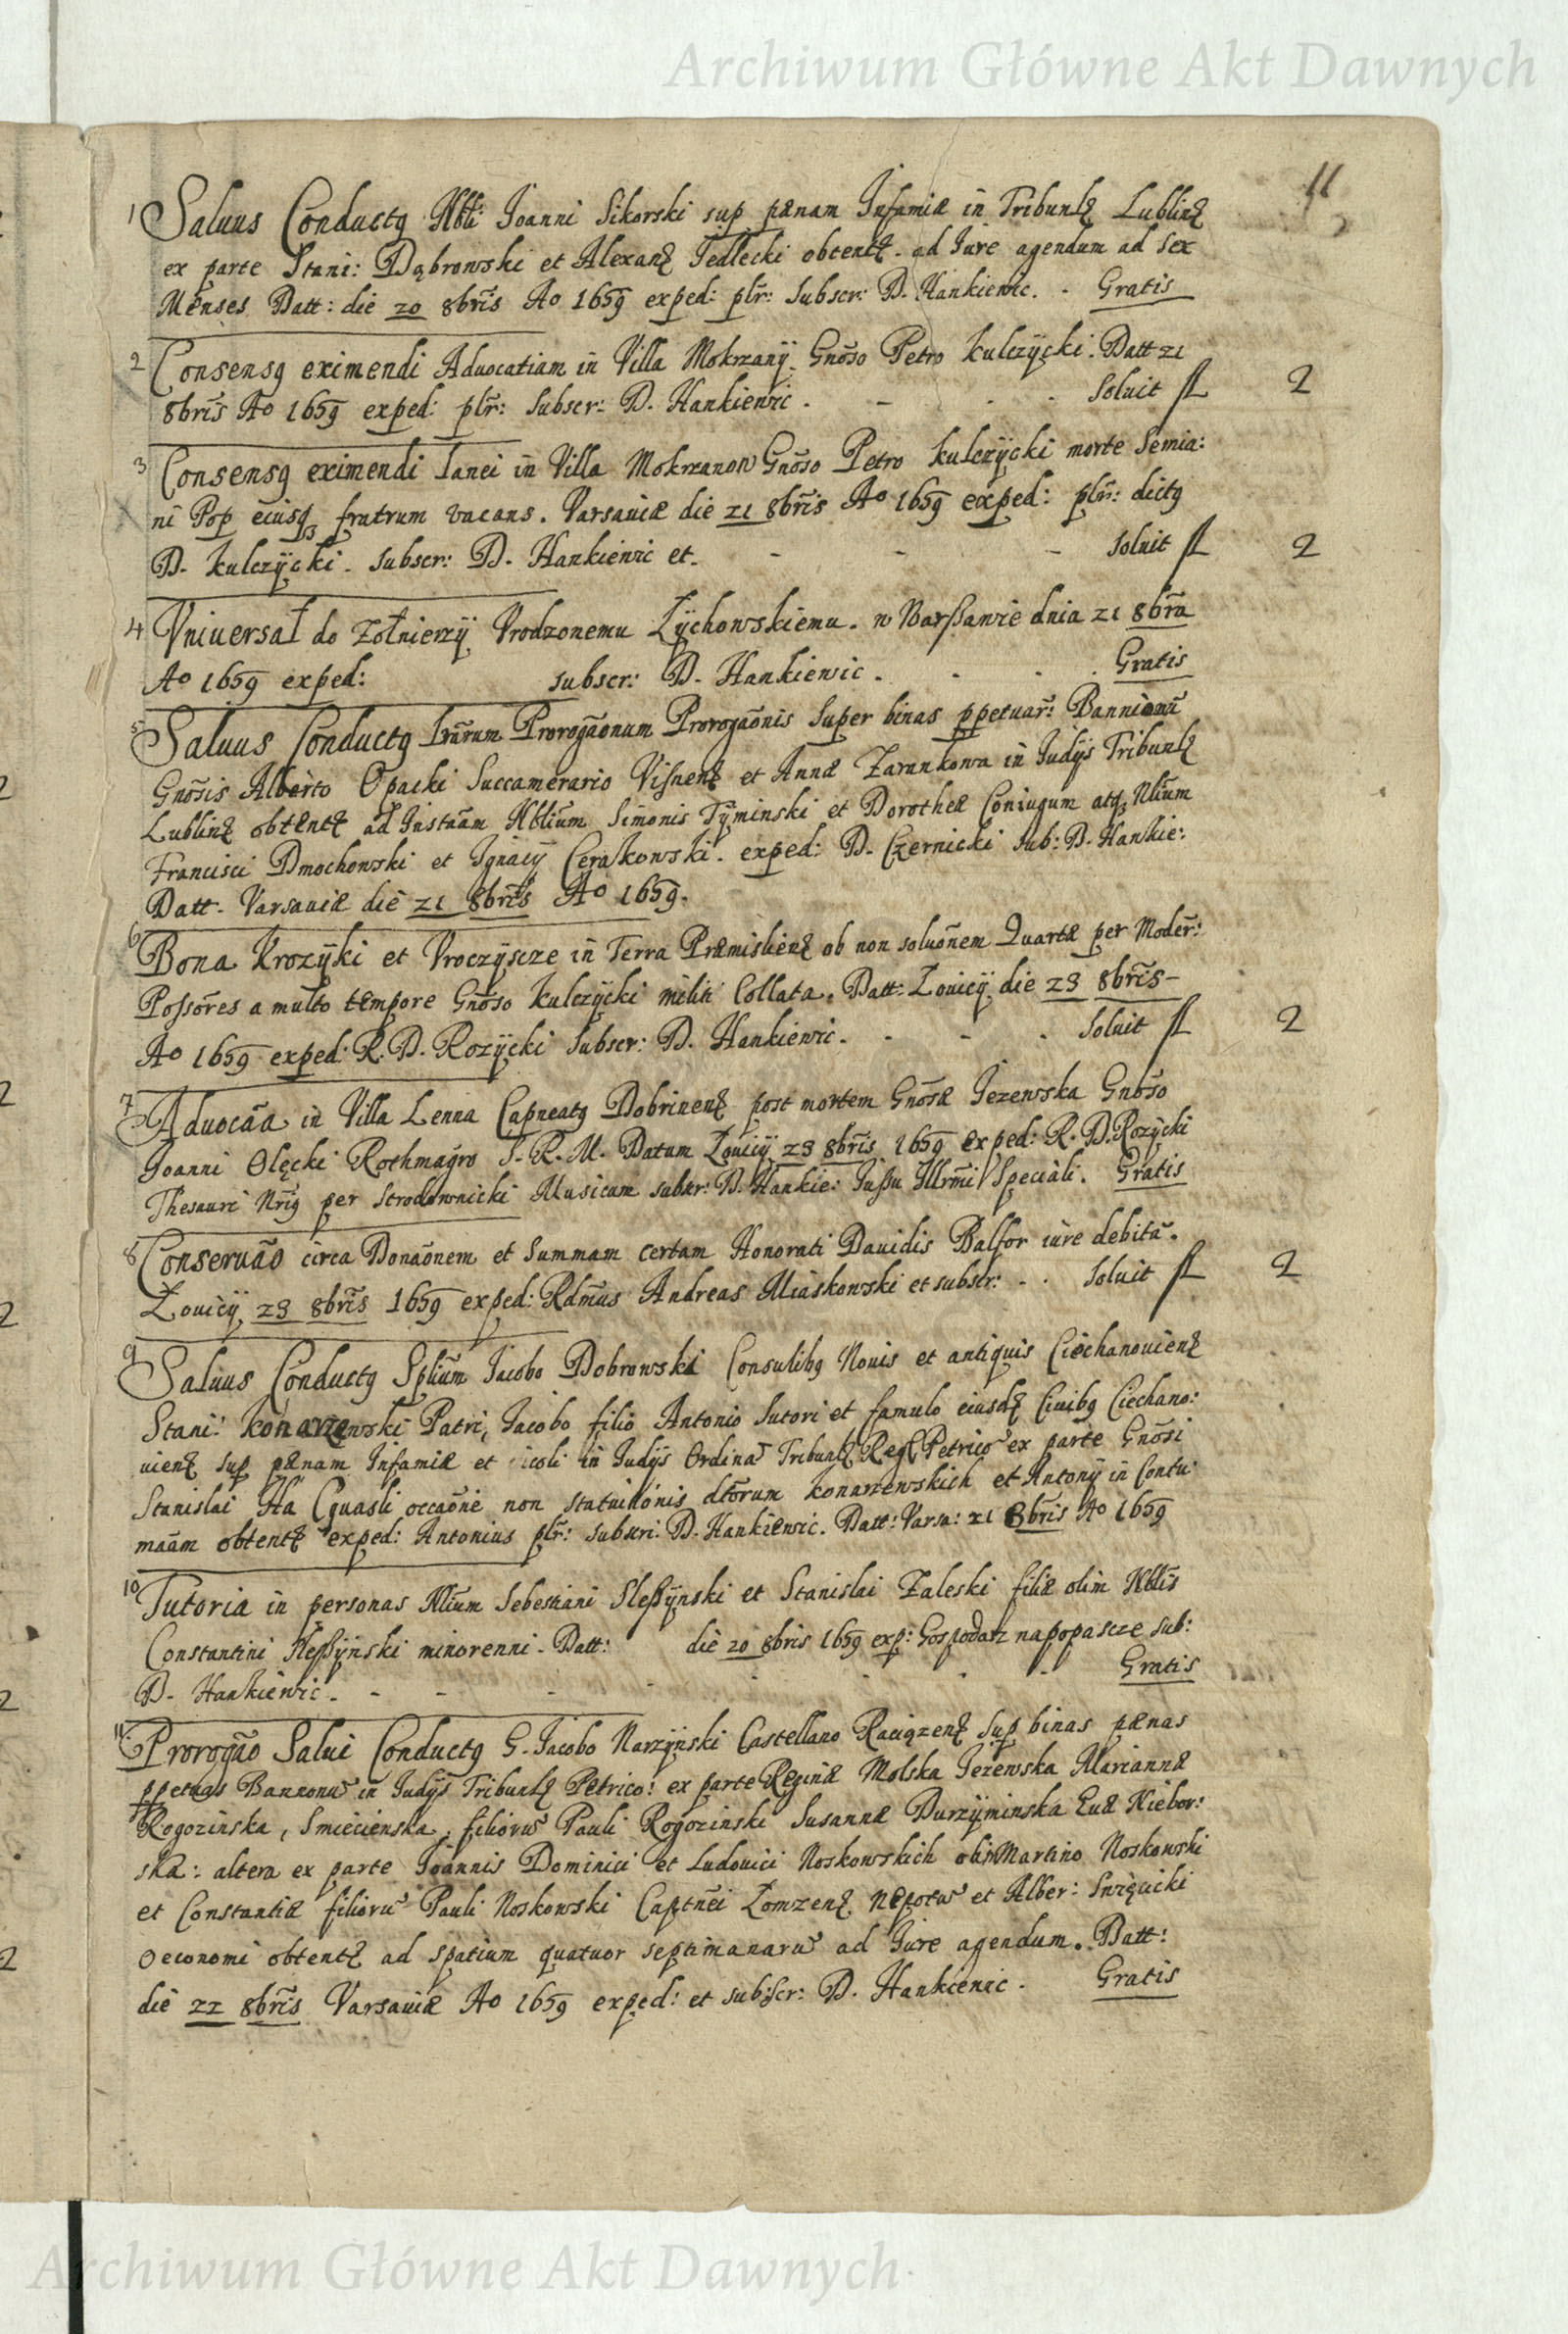 Archiwum Główne Akt Dawnych
11
1 Saluus Conductꝯ Nbli Joanni Sikorski sup pænam Infamiæ in Tribunlꝫ Lublinꝫ
ex parte Stani: Dąbrowski et Alexanꝫ Jedlecki obtentꝫ. ad Jure agendum ad sex
Menses Datt: die 20 8bris Ao 1659 exped: plr: subscr: D. Hankiewic. - Gratis
2 Consensꝯ eximendi Aduocatiam in Villa Mokrzany. Gnoso Petro Kulczycki. Datt 21
8bris Ao 1659 exped: plr: subscr: D. Hankiewic. - - - Soluit fl 2
3 Consensꝯ eximendi Lanei in Villa Mokrzanow Gnoso Petro Kulczycki morte Semia:
ni Pop eiusqꝫ fratrum vacans. Varsauiæ die 21 8bris Ao 1659 exped: plr: dictꝯ
D. Kulczycki. subscr: D. Hankiewic et. - - - Soluit fl 2
4 Vniuersał do Zołnierzy Vrodzonemu Zychowskiemu. w Warszawie dnia 21 8bra
Ao 1659 exped: subscr: D. Hankiewic. - - - Gratis
5 Saluus Conductꝯ Lrarum Prorogaonum Prorogaonis super binas ppetuar: Bannionu
Gnosis Alberto Opacki Succamerario Visnenꝫ et Annæ Zarankowa in Judys Tribunlꝫ
Lublinꝫ obtentꝫ ad Instaam Nblium Simonis Tyminski et Dorotheæ Coniugum atqꝫ Nlium
Francisci Dmochowski et Ignacy Cerakowski. exped: D. Czernicki sub: D. Hankie:
Datt. Varsauiæ die 21 8bris Ao 1659.
6 Bona Krozyki et Vroczyscze in Terra Præmislienꝫ ob non soluonem Quartæ per Moder:
Possores a multo tempore Gnoso Kulczycki militi Collata. Datt: Louicij die 23 8bris -
Ao 1659 exped: R. D. Rozycki subscr: D. Hankiewic. - - - Soluit fl 2
7 Aduocaa in Villa Lenna Capneatꝯ Dobrinenꝫ post mortem Gnosæ Jezewska Gnoso
Joanni Olęcki Rothmagro S. R. M. Datum Louicij 23 8bris 1659 exped: R. D. Rozycki
Thesauri Nrigꝯ per Strodownicki Musicum subscr: D. Hankie: Jussu Illrmi Speciali. Gratis
8 Conseruao circa Donaonem et summam certam Honorati Dauidis Balfor iure debita.
Louicij 23 8bris 1659 exped: Rdmus Andreas Miaskowski et subscr: - - Soluit fl 2
9 Saluus Conductꝯ Splium Jacobo Dobrowski Consulibꝯ Nouis et antiquis Ciechanouienꝫ
Stani: Konarzewski Patri, Jacobo filio Antonio sutori et famulo eiusdꝫ Ciuibꝯ Ciechano:
uienꝫ sup pænam Infamiæ et in Judys Ordina Tribunlꝫ Regl Petrico ex parte Gnosi
Stanislai occaone non statuitionis dtorum Konarzewskich et Antonij in Contu:
maam obtentꝫ exped: Antonius plr: subscri: D. Hankiewic. Datt: Varsa: 21 8bris Ao 1659
10 Tutoria in personas Nlium Sebestiani Slessynski et Stanislai Zaleski filiæ olim Nblis
Constantini Slessynski minorenni. Datt: die 20 8bris 1659 exp: Gospodarz na popascze sub:
D. Hankiewic. - - - - - - Gratis
11 Prorogao Salui Conductꝯ G. Jacobo Narzynski Castellano Raciązenꝫ sup binas pænas
ppetuas Bannonu in Judys Tribunlꝫ Petrico: ex parte Reginæ Molska Jezewska Mariannæ
Rogozinska, Smiecienska, filioru Pauli Rogozinski Susannæ Durzyminska Euæ Niebor:
skæ: altera ex parte Joannis Dominici et Ludouici Noskowskich olim Martino Noskowski
et Constantiæ filioru Pauli Noskowski Captnei Lomzenꝫ Nepotu et Alber: Snięcicki
oeconomi obtentꝫ ad spatium quatuor septimanaru ad Jure agendum. Datt:
die 22 8bris Varsauiæ Ao 1659 exped: et subscr: D. Hankiewic. Gratis
Archiwum Główne Akt Dawnych